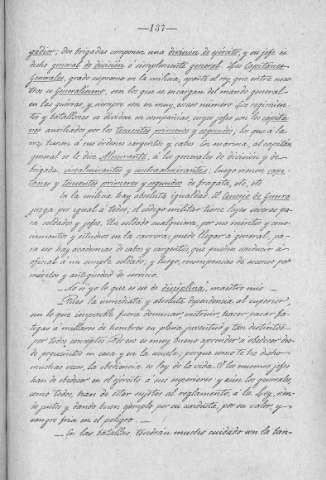 —137—
gadier; dos brigadas componen una división de ejército, y su jefe es
dicho general de división ó simplemente general. Los Capitanes
Generales, grado supremo en la milicia, aparte el rey que entre noso-
tros es Generalísimo, son los que se encargan del mando general
en las guerras, y siempre son en muy escaso número. Los regimien-
tos y batallones se dividen en compañías, cuyos jefes son los capita-
nes auxiliados por los tenientes primeros y segundos; los que á la
vez tienen á sus órdenes sargentos y cabos. En marina, al capitán
general se le dice Almirante, á los generales de división y de
brigada, vicealmirantes y contraalmirantes; luego vienen capi-
tanes y tenientes primeros y segundos de fragata, etc, etc
En la milicia hay absoluta igualdad. El Consejo de Guerra
juzga por igual á todos, el código militar tiene leyes severas pa-
ra soldados y jefes. Un soldado cualquiera, por sus méritos y cono-
cimientos y estudios en la carrera, puede llegar á general, pa-
ra eso hay academias de cabos y sargentos, que pueden conducir á
oficial á un simple soldado, y luego, recompensas de ascenso por
méritos y antigüedad de servicio.
—No sé yo lo que es eso de disciplina, maestro mío.—
—Pues la inmediata y absoluta dependencia al superior,
sin lo que imposible fuera dominar, instruir, hacer pasar fa-
tigas á millares de hombres en plena juventud y tan distintos
por todos conceptos. Por eso es muy bueno aprender á obedecer des-
de pequeñitos en casa y en la escuela; porque como te he dicho
muchas veces, la obediencia es ley de la vida. Y los mismos jefes
han de obedecer en el ejército á sus superiores y aun los generales,
como todos, han de estar sujetos al reglamento, á la Ley, sien-
do justos y dando buen ejemplo por su conducta, por su valor, y
sangre fría en el peligro.—
—En las batallas, tendrán mucho cuidado con la ban-